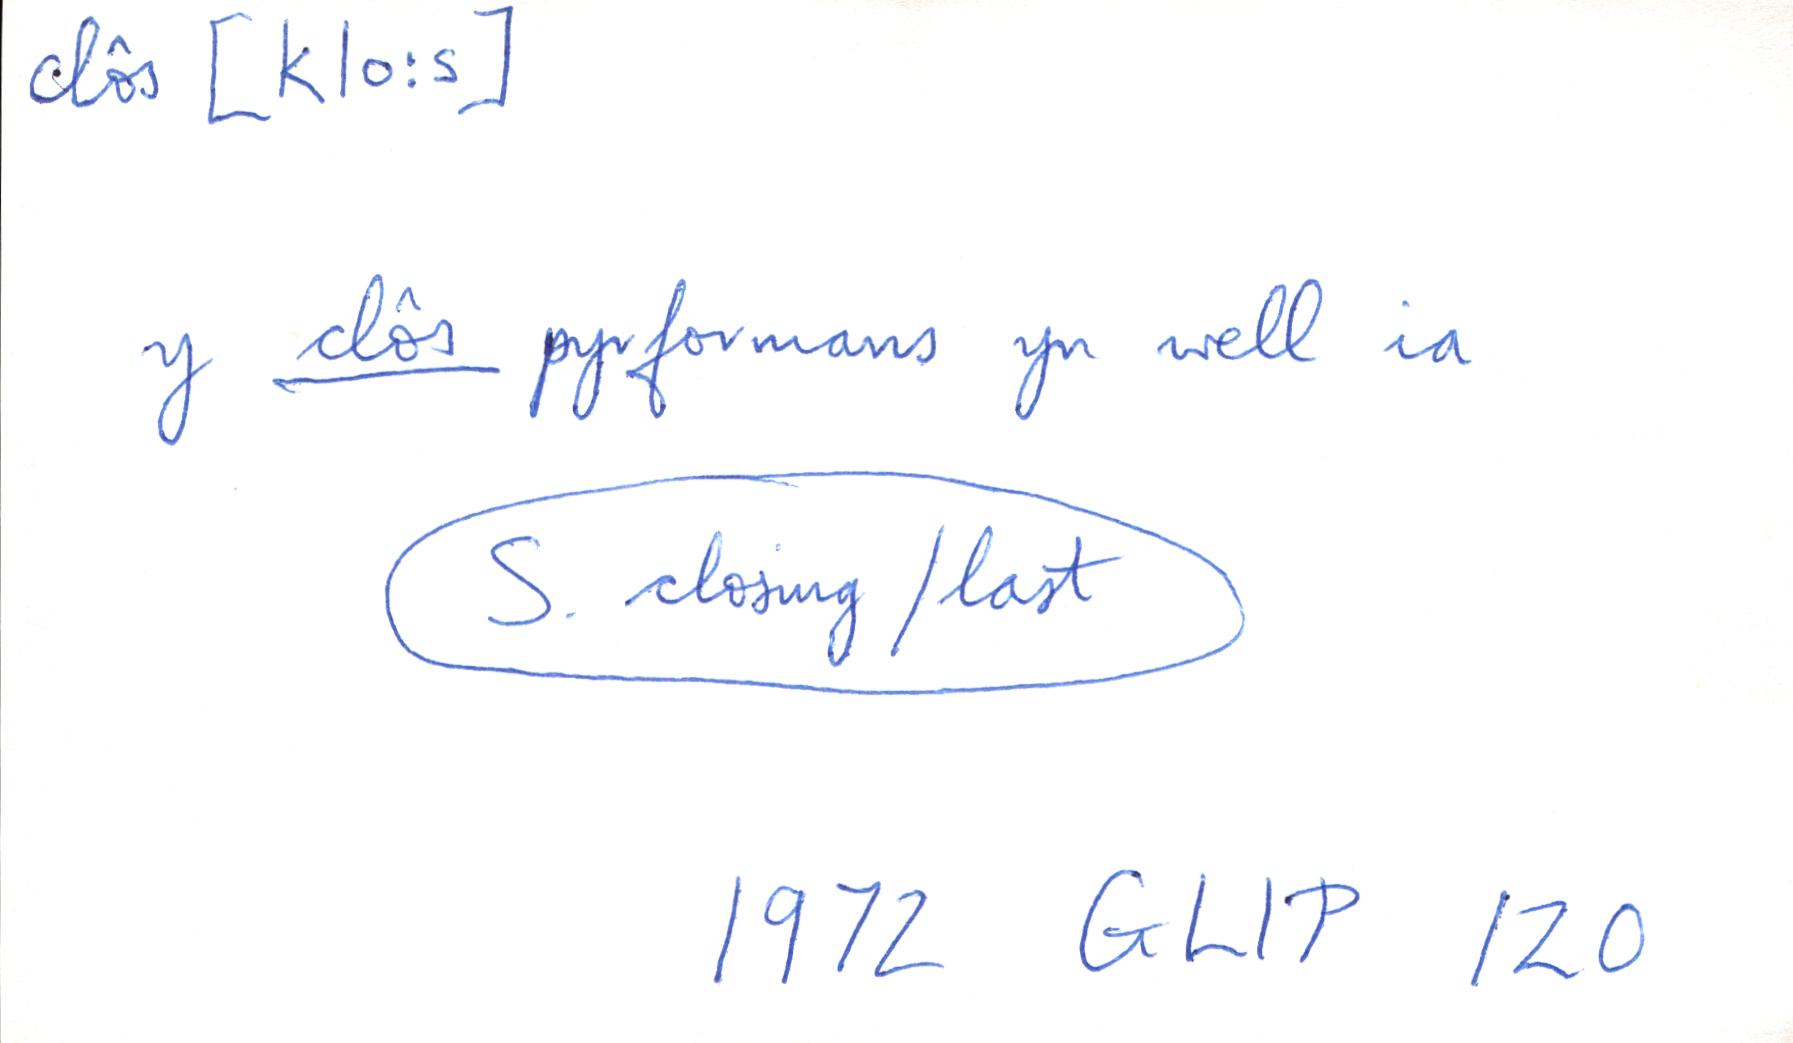 clôs [klo:s]
y clôs pyrformans yn well ia
S. closing / last
1972 GLIP 120